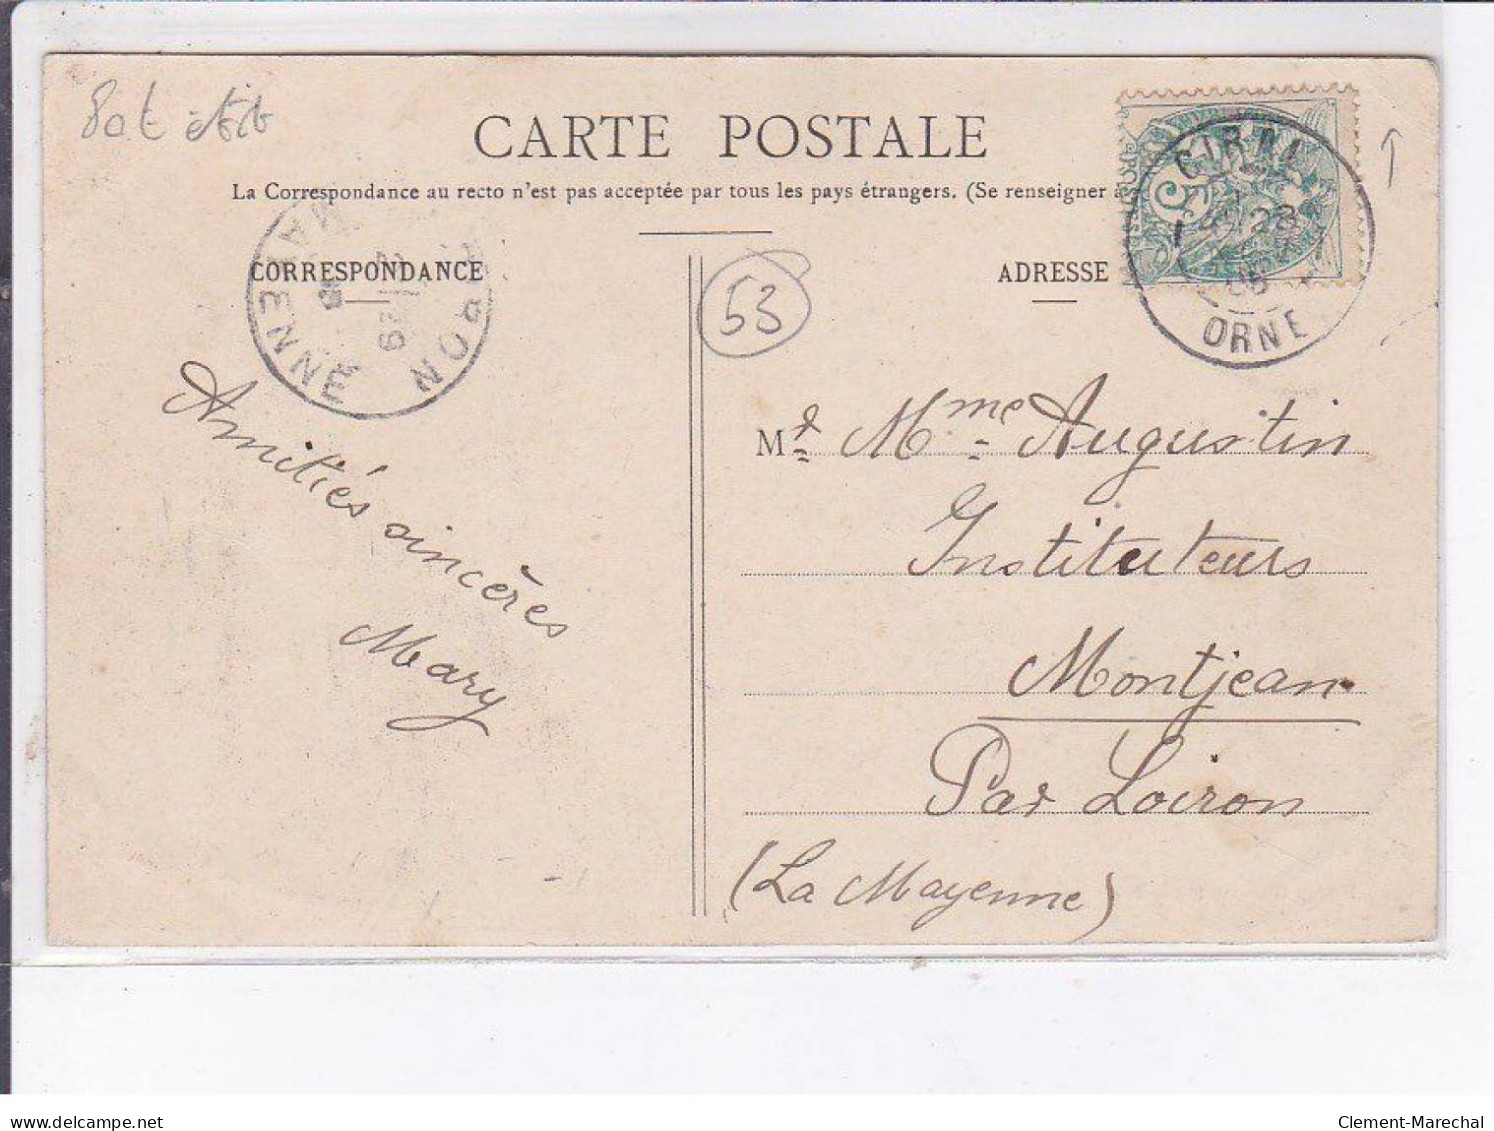 CARTE POSTALE
La Correspondance au recto n'est pas acceptée par tous les pays étrangers. (Se renseigner à
CORRESPONDANCE
ADRESSE
MAYENNE
CIRAL
28
06
ORNE
53
Amitiés sincères
Mary
M. & Mme Augustin
Instituteurs
Montjean
Par Loiron
(La Mayenne)
delcampe.net
Clement-Marechal